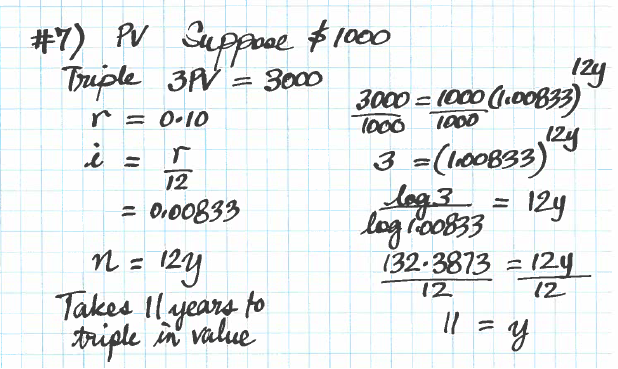 #7) PV Suppose $1000
Triple 3PV = 3000
r = 0.10
i = r/12
= 0.00833
n = 12y
Takes 11 years to
triple in value
3000/1000 = 1000/1000 (1.00833)^12y
3 = (1.00833)^12y
log 3/log 1.00833 = 12y
132.3873/12 = 12y/12
11 = y